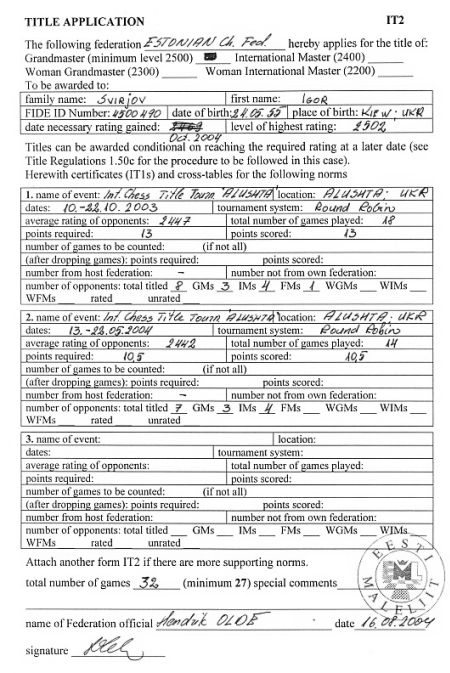 TITLE APPLICATION IT2
The following federation ESTONIAN Ch. Fed. hereby applies for the title of:
Grandmaster (minimum level 2500) International Master (2400) ____
Woman Grandmaster (2300) ____ Woman International Master (2200) ____
To be awarded to:
family name: SVIRJOV first name: IGOR
FIDE ID Number: 4500490 date of birth: 24.05.55 place of birth: KIEW: UKR
date necessary rating gained: Oct. 2004 level of highest rating: 2502
Titles can be awarded conditional on reaching the required rating at a later date (see
Title Regulations 1.50c for the procedure to be followed in this case).
Herewith certificates (IT1s) and cross-tables for the following norms
1. name of event: Int. Chess Title Tourn "ALUSHTA" location: ALUSHTA: UKR
dates: 10.-22.10.2003 tournament system: Round Robin
average rating of opponents: 2447 total number of games played: 18
points required: 13 points scored: 13
number of games to be counted: (if not all)
(after dropping games): points required: points scored:
number from host federation: - number not from own federation:
number of opponents: total titled 8 GMs 3 IMs 4 FMs 1 WGMs ___ WIMs ___
WFMs rated unrated
2. name of event: Int. Chess Title Tourn ALUSHTA location: ALUSHTA: UKR
dates: 13.-22.05.2004 tournament system: Round Robin
average rating of opponents: 2442 total number of games played: 14
points required: 10,5 points scored: 10,5
number of games to be counted: (if not all)
(after dropping games): points required: points scored:
number from host federation: - number not from own federation:
number of opponents: total titled 7 GMs 3 IMs 4 FMs ___ WGMs ___ WIMs ___
WFMs rated unrated
3. name of event: location:
dates: tournament system:
average rating of opponents: total number of games played:
points required: points scored:
number of games to be counted: (if not all)
(after dropping games): points required: points scored:
number from host federation: number not from own federation:
number of opponents: total titled ___ GMs ___ IMs ___ FMs ___ WGMs ___ WIMs
WFMs rated unrated
EESTI MALELIIT
Attach another form IT2 if there are more supporting norms.
total number of games 32 (minimum 27) special comments
name of Federation official Hendrik OLDE date 16.08.2004
signature